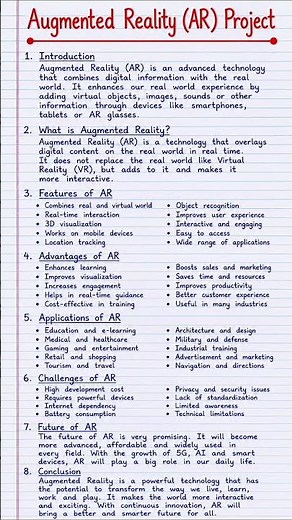 Augmented Reality (AR) Project
1. Introduction
Augmented Reality (AR) is an advanced technology
that combines digital information with the real
world. It enhances our real world experience by
adding virtual objects, images, sounds or other
information through devices like smartphones,
tablets or AR glasses.
2. What is Augmented Reality?
Augmented Reality (AR) is a technology that overlays
digital content on the real world in real time.
It does not replace the real world like Virtual
Reality (VR), but adds to it and makes it
more interactive.
3. Features of AR
• Combines real and virtual world
• Real-time interaction
• 3D visualization
• Works on mobile devices
• Location tracking
• Object recognition
• Improves user experience
• Interactive and engaging
• Easy to access
• Wide range of applications
4. Advantages of AR
• Enhances learning
• Improves visualization
• Increases engagement
• Helps in real-time guidance
• Cost-effective in training
• Boosts sales and marketing
• Saves time and resources
• Improves productivity
• Better customer experience
• Useful in many industries
5. Applications of AR
• Education and e-learning
• Medical and healthcare
• Gaming and entertainment
• Retail and shopping
• Tourism and travel
• Architecture and design
• Military and defense
• Industrial training
• Advertisement and marketing
• Navigation and directions
6. Challenges of AR
• High development cost
• Requires powerful devices
• Internet dependency
• Battery consumption
• Privacy and security issues
• Lack of standardization
• Limited awareness
• Technical limitations
7. Future of AR
The future of AR is very promising. It will become
more advanced, affordable and widely used in
every field. With the growth of 5G, AI and smart
devices, AR will play a big role in our daily life.
8. Conclusion
Augmented Reality is a powerful technology that has
the potential to transform the way we live, learn,
work and play. It makes the world more interactive
and exciting. With continuous innovation, AR will
bring a better and smarter future for all.